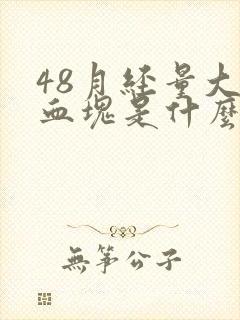 48月经量大
血塊是什麽
無筝公子